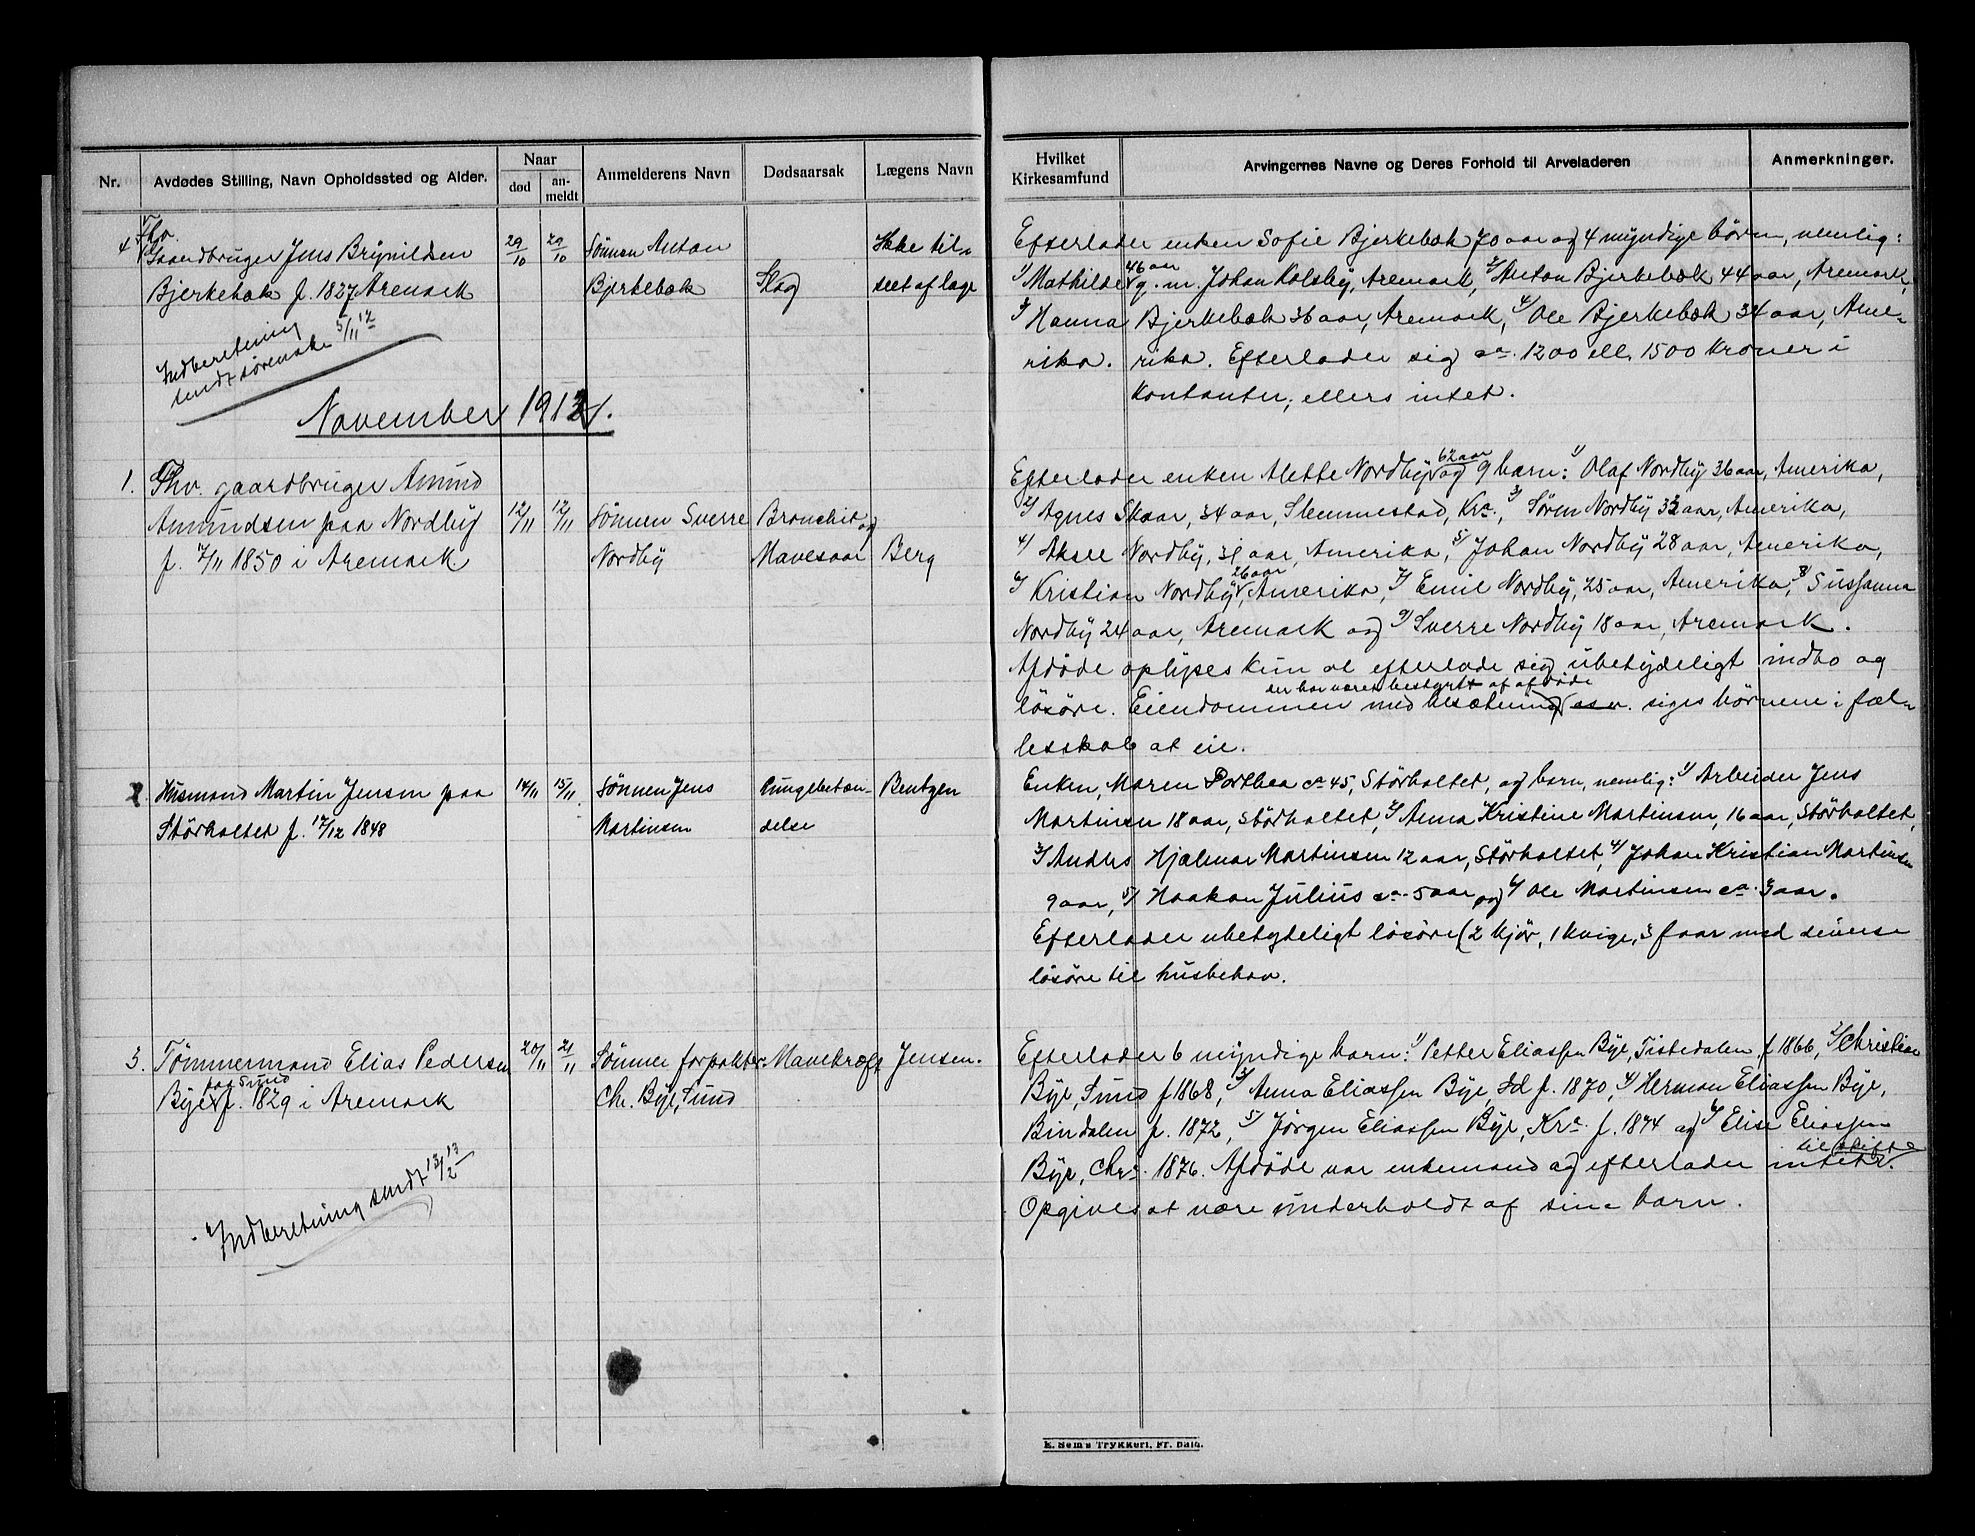 Nr.
Avdødes Stilling, Navn Opholdssted og Alder.
Naar
død
an-
meldt
Anmelderens Navn
Dødsaarsak
Lægens Navn
Hvilket
Kirkesamfund
Arvingernes Navne og Deres Forhold til Arveladeren
Anmerkninger.
Fhv.
4 Gaardbruger Jens Brynildsen
Bjerkebæk f. 1827 Aremark
29/10
29/10
Sønnen Anton
Bjerkebæk
Slag
Ikke til-
seet af læge
Indberetning
sendt sørenskr. 5/11 12
Efterlader enken Sofie Bjerkebæk 70 aar og 4 myndige børn, nemlig:
46 aar
1/ Mathilde g. m. Johan Kolsby, Aremark, 2/ Anton Bjerkebæk 44 aar, Aremark,
3/ Hanna Bjerkebæk 36 aar, Aremark, 4/ Ole Bjerkebæk 34 aar, Ame-
rika. rika. Efterlader sig ca. 1200 ell. 1500 kroner i
kontanter, ellers intet.
November 1912.
1. Fhv. gaardbruger Amund
Amundsen paa Nordby
f. 7/11 1850 i Aremark.
12/11
12/11
Sønnen Sverre
Nordby
Bronchit og
Mavesaar
Berg
62 aar
Efterlader enken Alette Nordby og 9 barn: 1/ Olaf Nordby 36 aar, Amerika,
2/ Agnes Skaar, 34 aar, Slemmestad, Kra., 3/ Søren Nordby 33 aar, Amerika,
4/ Aksel Nordby, 31 aar, Amerika, 5/ Johan Nordby 28 aar, Amerika,
26 aar
6/ Kristian Nordby, Amerika, 7/ Emil Nordby, 25 aar, Amerika, 8/ Sussanna
Nordby 24 aar, Aremark og 9/ Sverre Nordby 18 aar, Aremark.
Afdøde oplyses kun at efterlade sig ubetydeligt indbo og
der har været bestyrt af afdøde
løsøre. Eiendommen med besætning osv. siges børnene i fæl-
lesskab at eie.
2. Husmand Martin Jensen paa
Störholtet f. 17/12 1848
14/11
15/11
Sønnen Jens
Martinsen
Lungebetæn-
delse
Bentzen
Enken, Maren Dorthea ca 45, Störholtet, og barn, nemlig: 1/ Arbeider Jens
Martinsen 18 aar, Störholtet, 2/ Anna Kristine Martinsen, 16 aar, Störholtet,
3/ Anders Hjalmar Martinsen 12 aar, Störholtet, 4/ Johan Kristian Martinsen
9 aar, 5/ Haakon Julius ca. 5 aar og 6/ Ole Martinsen ca. 3 aar.
Efterlader ubetydeligt løsøre (2 kjør, 1 kvige, 3 faar med diverse
løsøre til husbehov.
3. Tømmermand Elias Pedersen
paa Sund
Bye f. 1829 i Aremark
20/11
21/11
Sønnen forpakter
Chr. Bye, Sund
Mavekræft
Jensen.
Indberetning sendt 12/2 13
Efterlader 6 myndige barn: 1/ Petter Eliassen Bye, Tistedalen f 1866, 2/ Christian
Bye, Sund f 1868, 3/ Anna Eliassen Bye, Sd f. 1870, 4/ Herman Eliassen Bye,
Bindalen f. 1872, 5/ Jørgen Eliassen Bye, Kra. f. 1874 og 6/ Elise Eliassen
til skifte
Bye, Chr. 1876. Afdøde var enkemand og efterlader intet.
Opgives at være underholdt af sine barn.
E. Sem's Trykkeri, Fr. Hald.